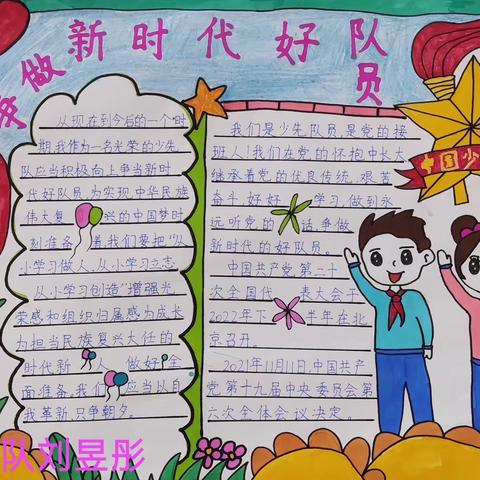 争做新时代好队员
从现在到今后的一个时
期,我作为一名光荣的少先
队应当积极向上争当新时
代好队员,为实现中华民族
伟大复兴的中国梦时
刻准备着,我们要把“从
小学习做人、从小学习立志
从小学习创造”增强光
荣感和组织归属感为成长
为担当民族复兴大任的
时代新人做好全
面准备。我们应当以自
我革新,只争朝夕。
我们是少先队员,是党的接
班人!我们在党的怀抱中长大
继承着党的优良传统,艰苦
奋斗,好好学习,做到永
远听党的话,争做
新时代的好队员。
中国共产党第二十
次全国代表大会于
2022年下半年在北
京召开。
2021年11月11日,中国共产
党第十九届中央委员会第
六次全体会议决定。
中国少
队刘昱彤